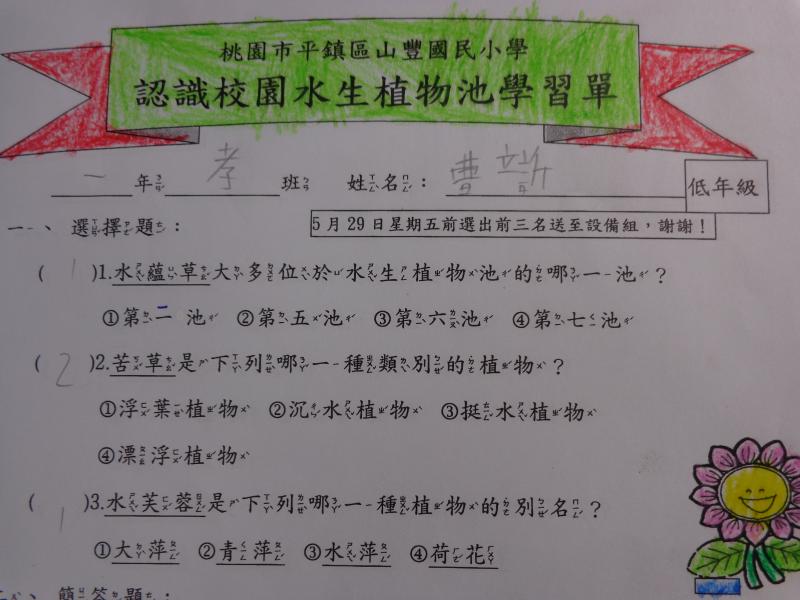 桃園市平鎮區山豐國民小學
認識校園水生植物池學習單
一年孝班 姓名：曹 低年級
一、選擇題： 5月29日星期五前選出前三名送至設備組，謝謝！
(1)1.水蘊草大多位於水生植物池的哪一池？
①第二池 ②第五池 ③第六池 ④第七池
(2)2.苦草是下列哪一種類別的植物？
①浮葉植物 ②沉水植物 ③挺水植物
④漂浮植物
(1)3.水芙蓉是下列哪一種植物的別名？
①大萍 ②青萍 ③水萍 ④荷花
二、簡答題：